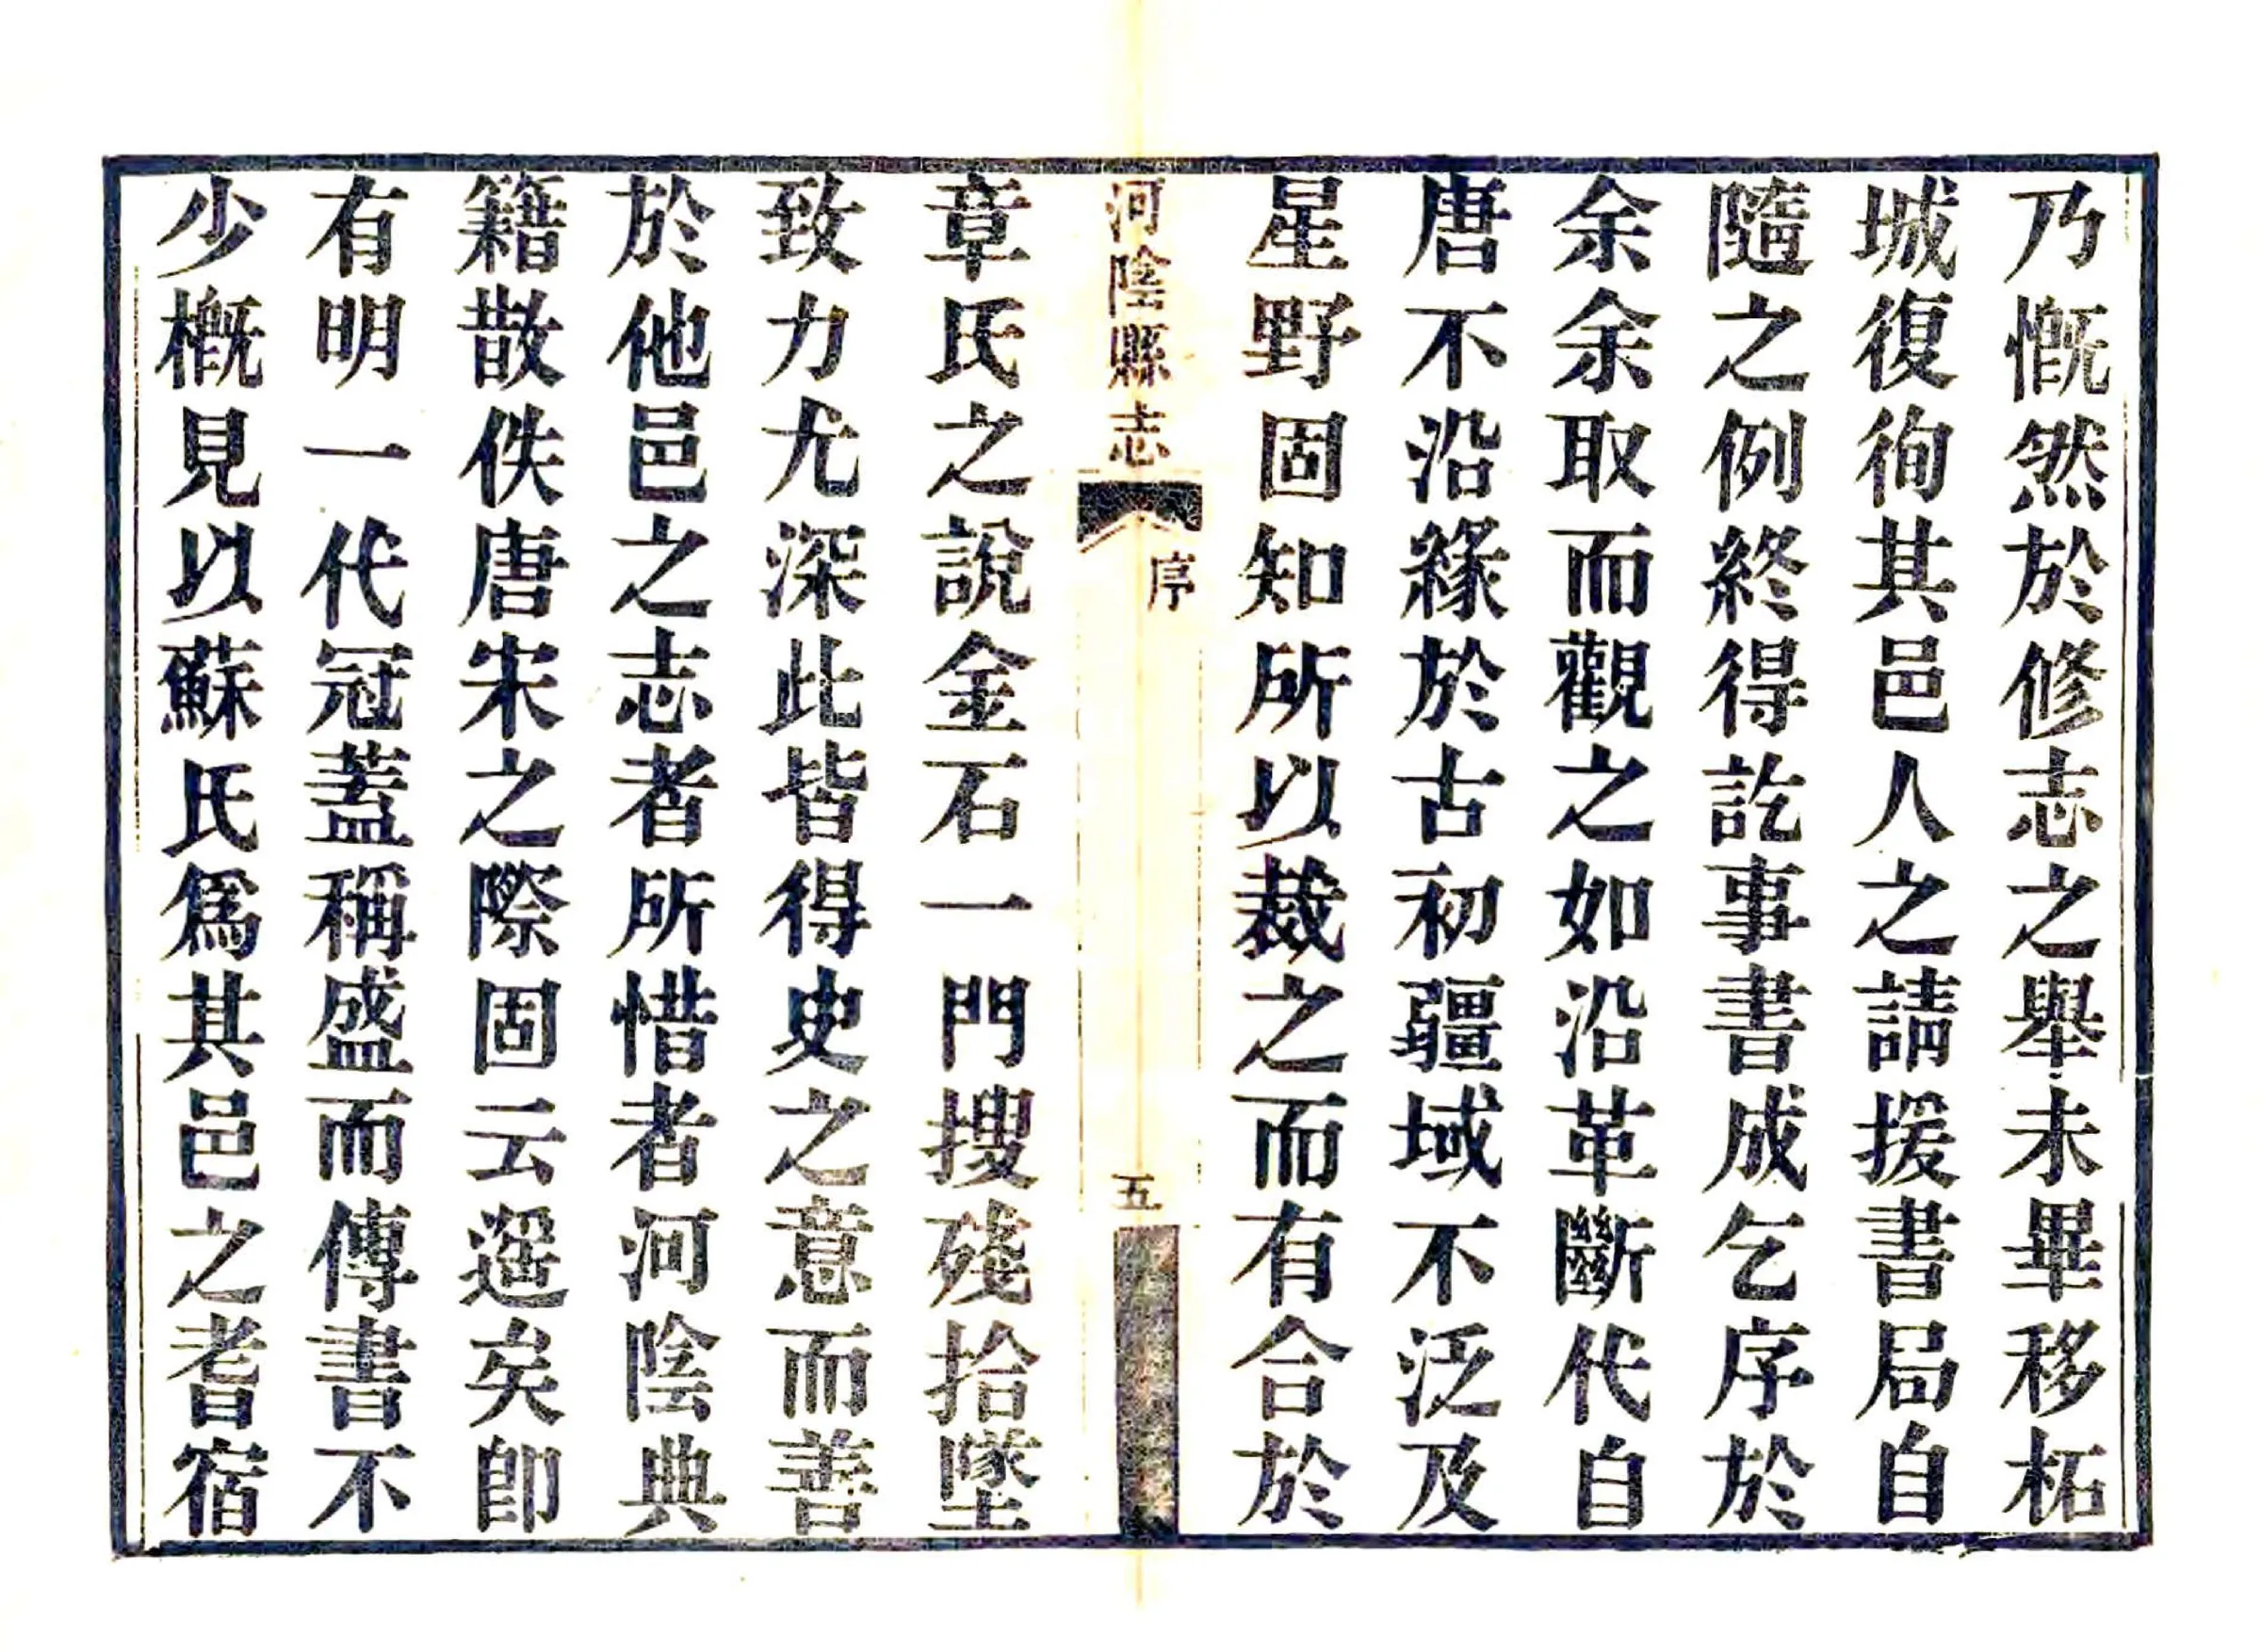 乃慨然於修志之舉未畢移柘
城復徇其邑人之請援書局自
隨之例終得訖事書成乞序於
余余取而觀之如沿革斷代自
唐不沿緣於古初疆域不泛及
星野固知所以裁之而有合於
河陰縣志
序
五
章氏之說金石一門搜殘拾墜
致力尤深此皆得史之意而善
於他邑之志者所惜者河陰典
籍散佚唐宋之際固云遥矣卽
有明一代冠蓋稱盛而傳書不
少概見以蘇氏爲其邑之耆宿